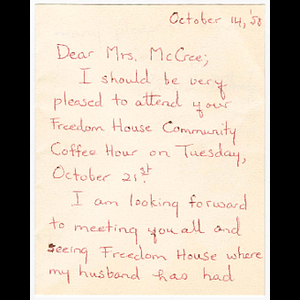 October 14, '58
Dear Mrs. McCree;
I should be very
pleased to attend your
Freedom House Community
Coffee Hour on Tuesday,
October 21st.
I am looking forward
to meeting you all and
seeing Freedom House where
my husband has had